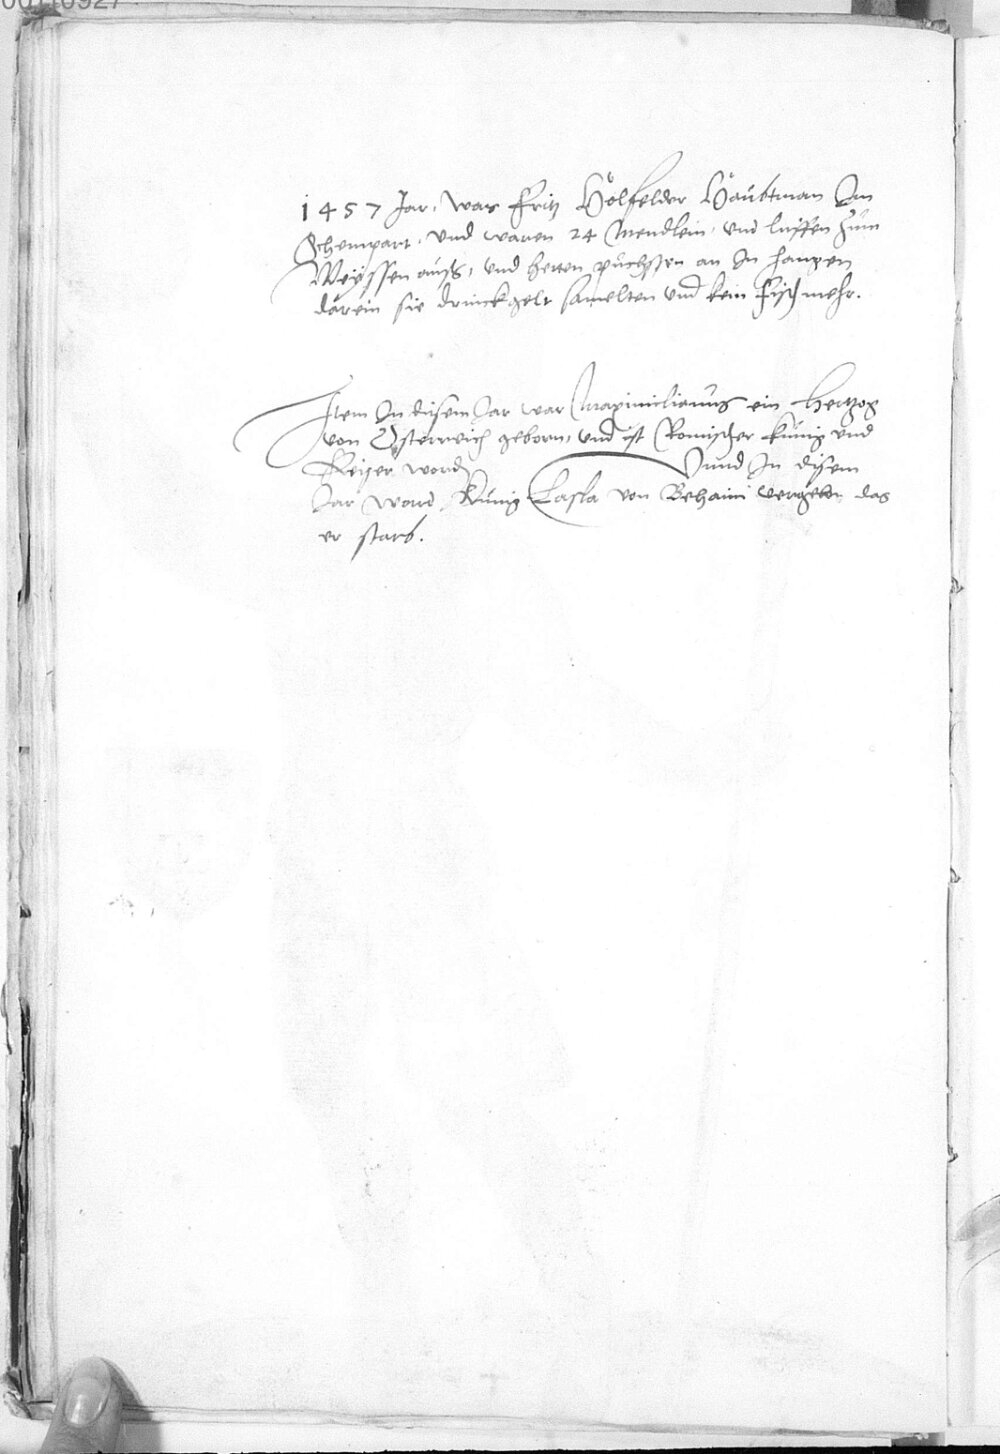 1457 Jar, War Fritz Hölfelder Haubtman Im
Schempart, und waren 24 Mendlein, und luffen zum
Weyssen auß, und hetten puchssen an In hangen
darein sie drinckgelt samelten und kein Fisch mehr.
Item In disem Jar war Maximilianus ein Hertzog
von Österreich geborn, und ist Romischer künig und
Keiser word
Vnnd In disem
Jar ward Künig Lasla von Behaim vergeben das
er starb.